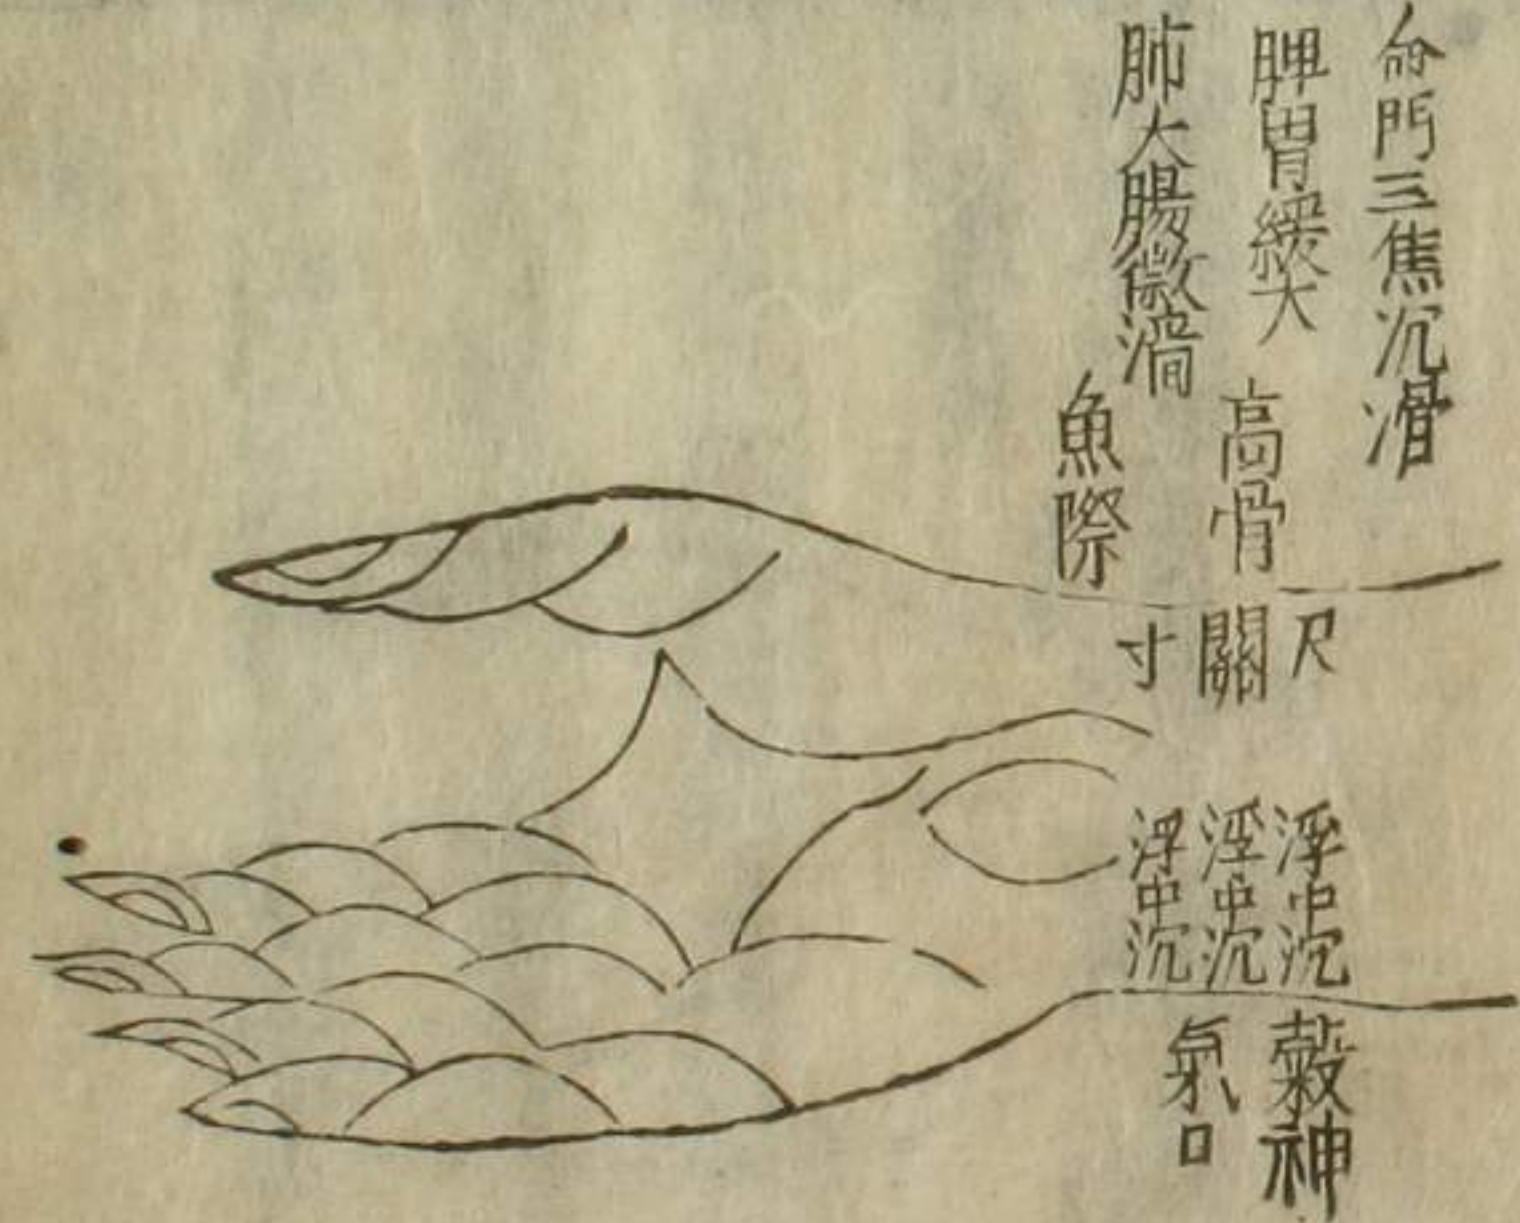 命門三焦沉滑
脾胃緩大
肺大腸微濇
高骨
魚際
尺
關
寸
浮中沉
浮中沉
浮中沉
穀神
氣口